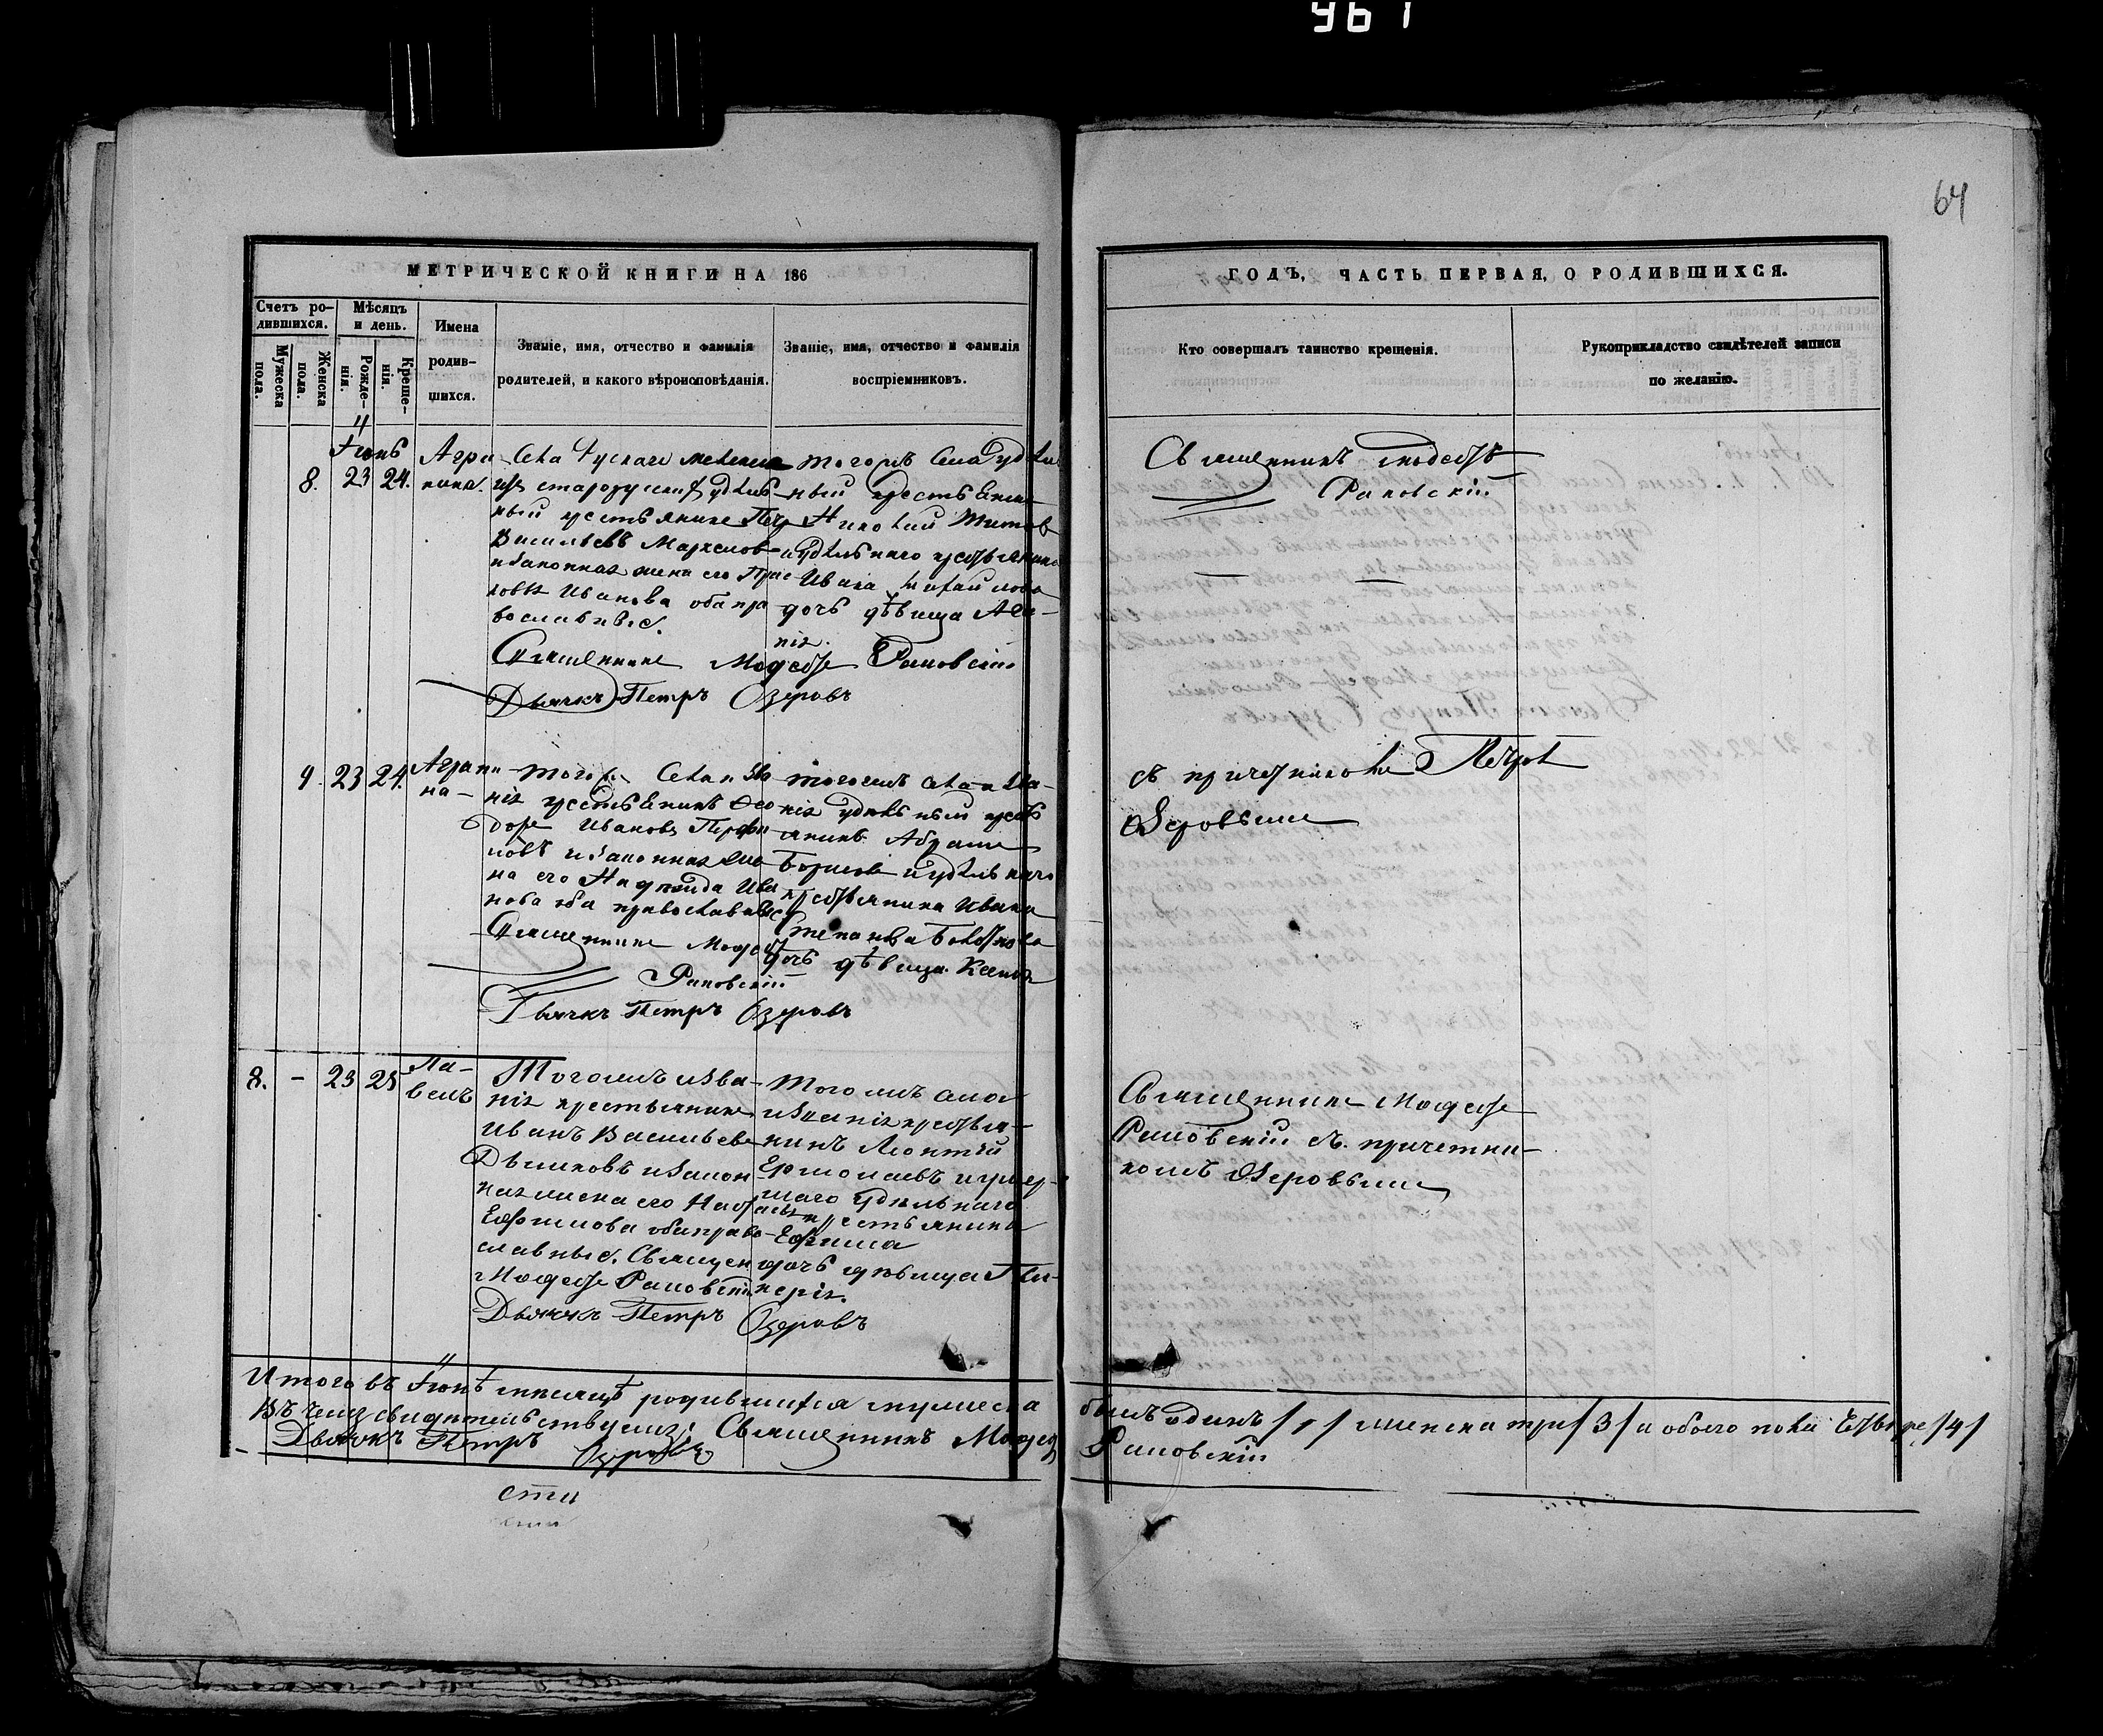 961
64
МЕТРИЧЕСКОЙ КНИГИ НА 186
ГОДЪ, ЧАСТЬ ПЕРВАЯ, О РОДИВШИХСЯ.
Счетъ ро-
дившихся.
Мѣсяцъ
и день.
Мужеска
пола.
Женска
пола.
Рожде-
нія.
Креще-
нія.
Имена
родив-
шихся.
Званіе, имя, отчество и фамилія
родителей, и какого вѣроисповѣданія.
Званіе, имя, отчество и фамилія
воспріемниковъ.
Кто совершалъ таинство крещенія.
Рукоприкладство свидѣтелей записи
по желанію.
Іюнь
8. 23 24.
Агри-
пина.
Села
изъ удѣль-
ный крестьянинъ
Васильевъ
и законная жена его Прас-
ковья Иванова оба пра
вославные.
Священникъ Модестъ Раповскій
Дьячкъ Петръ Озеровъ
тогожъ села удѣль
ный крестьянин
Николай Титов
и удѣльнаго крестьянина
Ивана Михайлова
дочь дѣвица
нія.
Священникъ Модестъ
Раповскій
9. 23 24.
Агрипи
на-
тогожъ села и зва
нія крестьянинъ Фео
доръ Ивановъ
новъ и законная жена
на его Надежда Ива
нова оба православные
Священникъ Модестъ
Раповскій
Дьячкъ Петръ Озеровъ
тогожъ села и зва-
нія удѣльный крест
янинъ Абрамъ
Борисов и удѣльнаго
крестьянина Ивана
Степанова
дочь дѣвица Ксенія
съ причетникомъ Петромъ
Озеровымъ
8. - 23 25
Па-
велъ
Тогожъ и зва-
нія крестьянинъ
Иванъ Васильевъ
и закон
ная жена его
Ефимова оба право-
славные. Священ
Модестъ Раповскій
Дьячкъ Петръ Озеровъ
Того жъ села
и званія крестья-
нинъ Леонтій
Ермолаевъ и умер-
шаго удѣльнаго
крестьянина
Ефима
дочь дѣвица Гли-
керія.
Священникъ Модестъ
Раповскій съ причетни-
комъ Озеровымъ
Итого въ Іюнѣ мѣсяцѣ родившихся мужеска былъ одинъ /1/ женска три /3/ а обоего пола четыре /4/
Въ чемъ свидѣтельствуемъ: Священникъ Модестъ Раповскій
Дьячкъ Петръ Озеровъ
сти